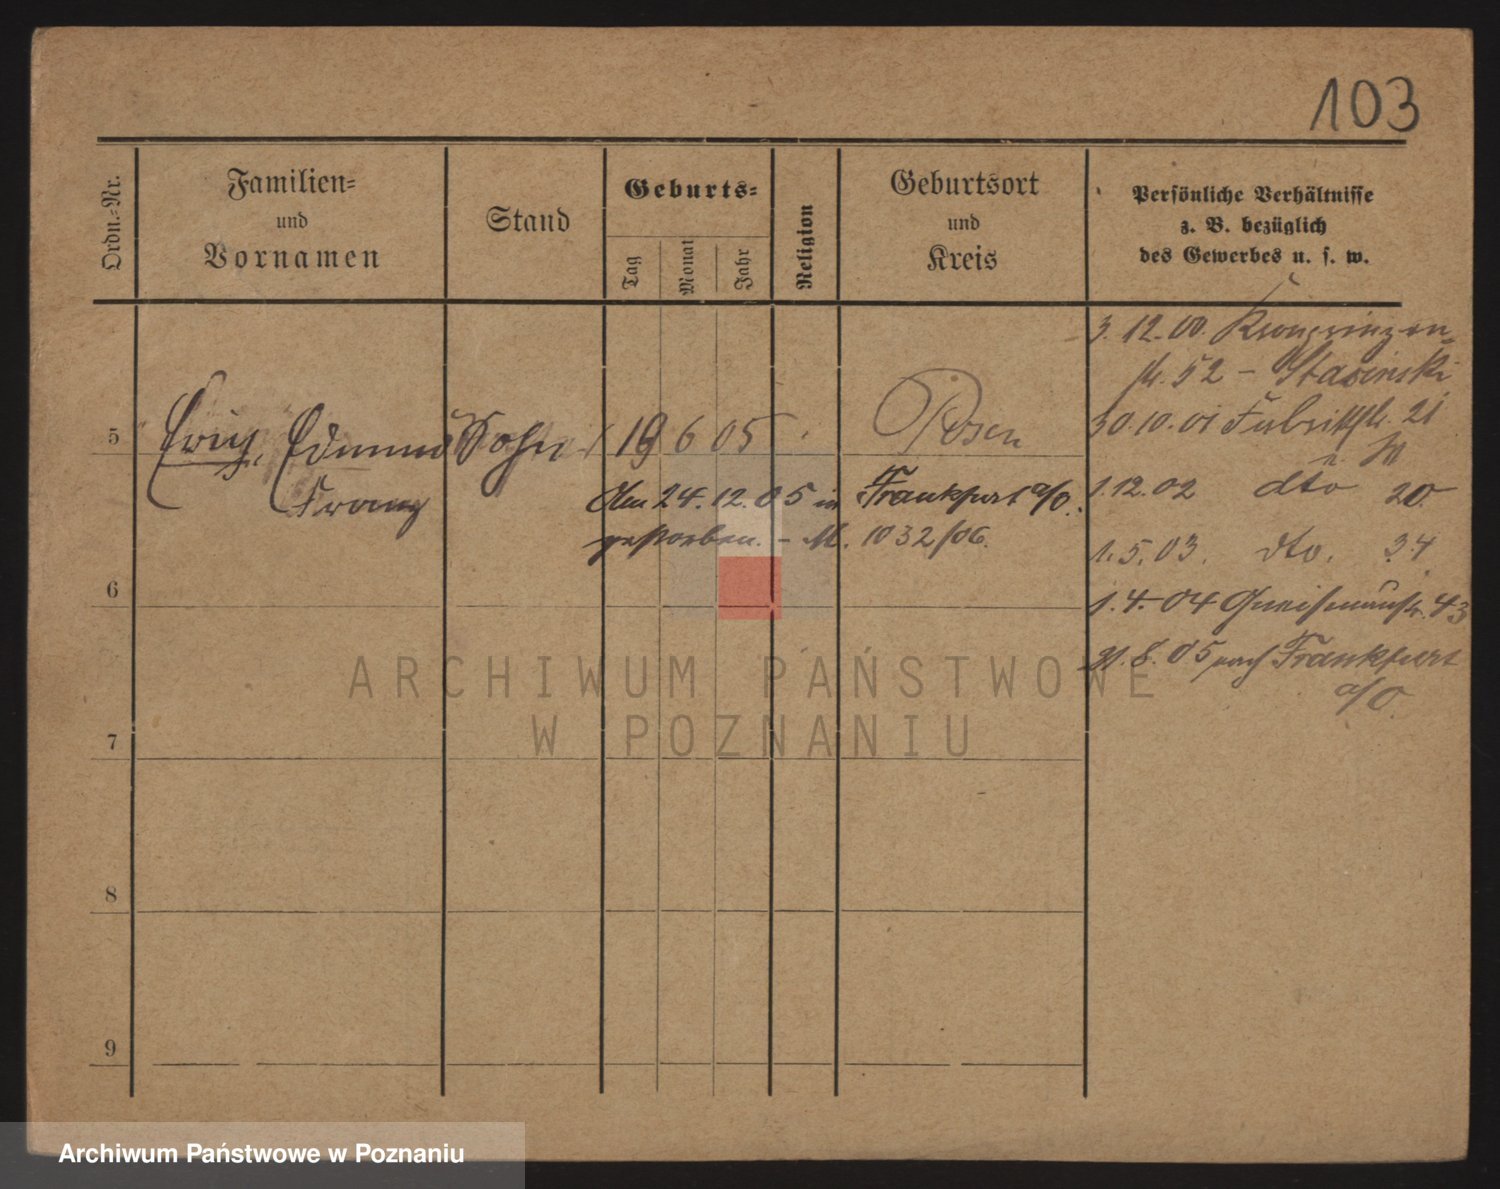 103
Ordn.-Nr.
Familien-
und
Vornamen
Stand
Geburts-
Tag
Monat
Jahr
Religion
Geburtsort
und
Kreis
Persönliche Verhältnisse
z. B. bezüglich
des Gewerbes u. s. w.
3.12.00. Kronprinzen-
str. 52 - Stasinski
30.10.01 Fabrikstr. 21
5 Erich, Edmund Sohn 19 6 05 Posen
Franz
Am 24.12.05 in Frankfurt a/O.
gestorben. - M. 1032/06.
1.12.02 dto 20
1.5.03. dto. 34
6
1.4.04 Gneisenaustr. 43
31.8.05 nach Frankfurt
a/O.
ARCHIWUM PAŃSTWOWE
W POZNANIU
7
8
9
Archiwum Państwowe w Poznaniu